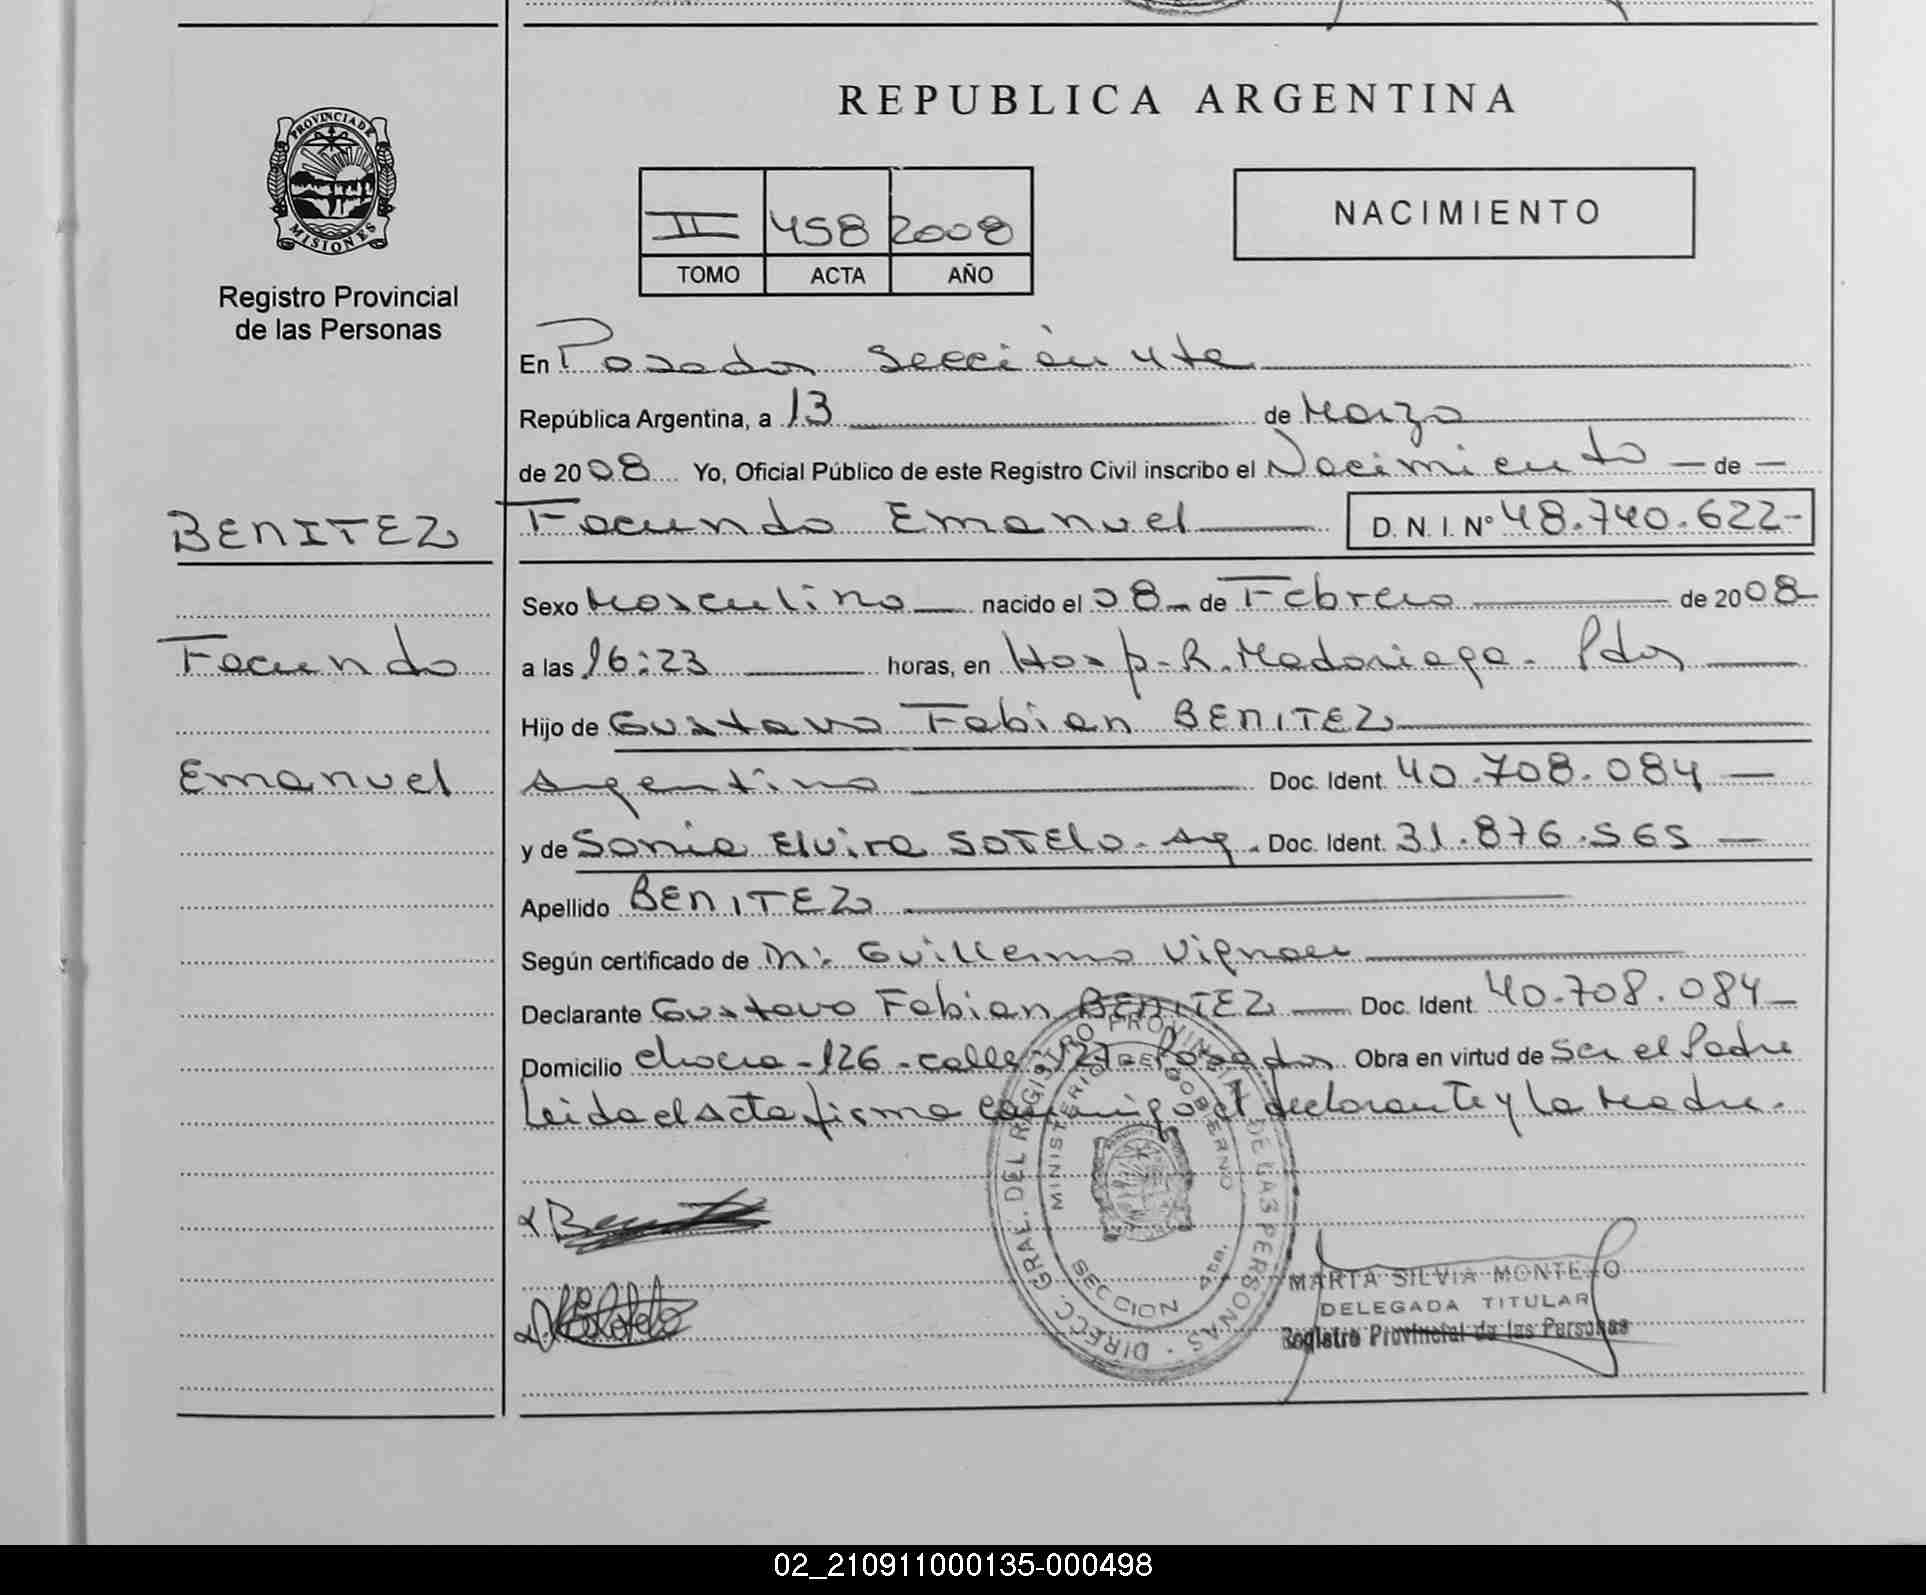 REPUBLICA ARGENTINA
PROVINCIA DE
MISIONES
Registro Provincial
de las Personas
II 458 2008
TOMO ACTA AÑO
NACIMIENTO
En Posadas Sección 4ta
República Argentina, a 13 de Marzo
de 2008 Yo, Oficial Público de este Registro Civil inscribo el Nacimiento — de —
BENITEZ
Facundo Emanuel D. N. I. Nº 48.740.622-
Sexo Masculino nacido el 08 de Febrero de 2008
Facundo
a las 16:23 horas, en Hosp. R. Madariaga. Pdas
Hijo de Gustavo Fabian BENITEZ
Emanuel
Argentino Doc. Ident. 40.708.084 —
y de Sonia Elvira SOTELO - Arg. Doc. Ident. 31.876.565 —
Apellido BENITEZ
Según certificado de Dr. Guillermo
Declarante Gustavo Fabian BENITEZ — Doc. Ident. 40.708.084 —
Domicilio chacra - 126 - calle 127 - Posadas Obra en virtud de Ser el Padre
Leida el Acta firma conmigo el declarante y la Madre.
DIREC. GRAL. DEL REGISTRO PROVINCIAL DE LAS PERSONAS
MINISTERIO DE GOBIERNO
SECCION 4ta.
MARTA SILVIA MONTERO
DELEGADA TITULAR
Registro Provincial de las Personas
02_210911000135-000498